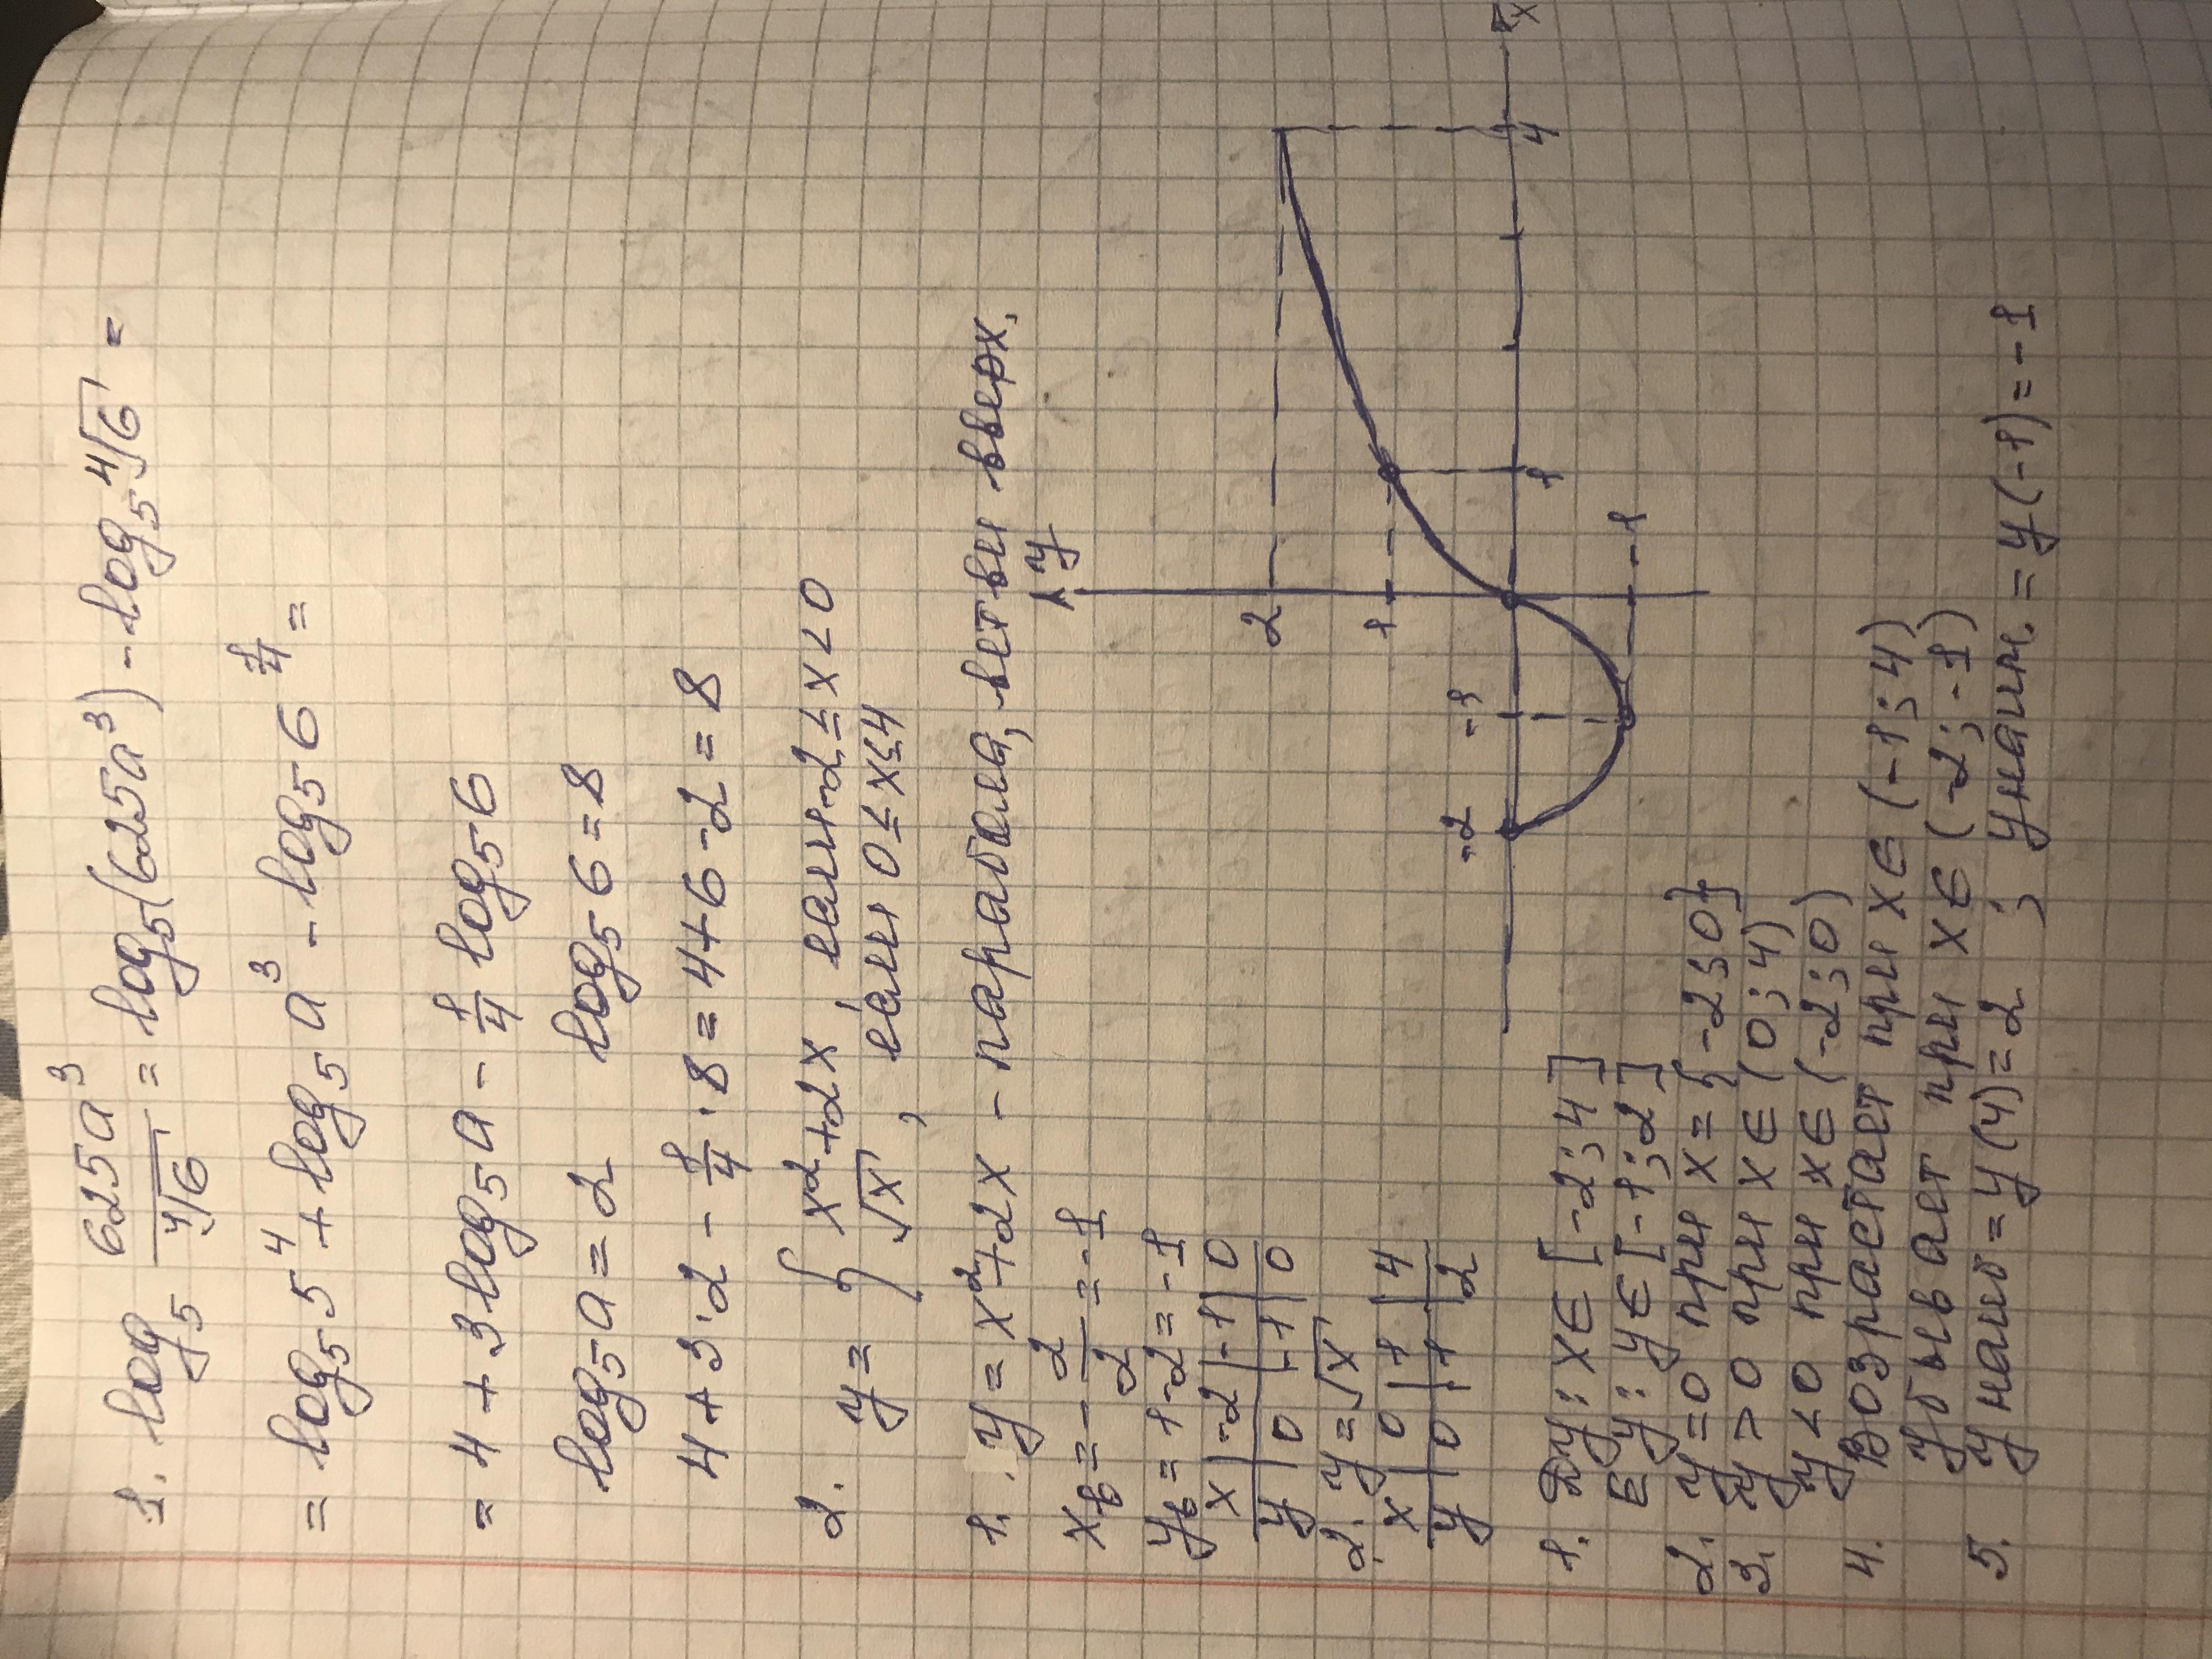 1. log₅ 625a³/⁴√6 = log₅(625a³) - log₅ ⁴√6 =
= log₅ 5⁴ + log₅ a³ - log₅ 6^(1/4) =
= 4 + 3 log₅ a - 1/4 log₅ 6
log₅ a = 2 log₅ 6 = 8
4 + 3·2 - 1/4 · 8 = 4 + 6 - 2 = 8
2. y = { x² + 2x, если -2 ≤ x < 0
√x, если 0 ≤ x ≤ 4
1. y = x² + 2x - парабола, ветви вверх.
xв = - 2/2 = -1
yв = 1 - 2 = -1
x | -2 | -1 | 0
y | 0 | -1 | 0
2. y = √x
x | 0 | 1 | 4
y | 0 | 1 | 2
y
2
1
-2 -1
1
4
x
-1
1. Dy: x ∈ [-2; 4]
Ey: y ∈ [-1; 2]
2. y = 0 при x = {-2; 0}
3. y > 0 при x ∈ (0; 4)
y < 0 при x ∈ (-2; 0)
4. Возрастает при x ∈ (-1; 4)
Убывает при x ∈ (-2; -1)
5. yнаиб = y(4) = 2 ; yнаим. = y(-1) = -1